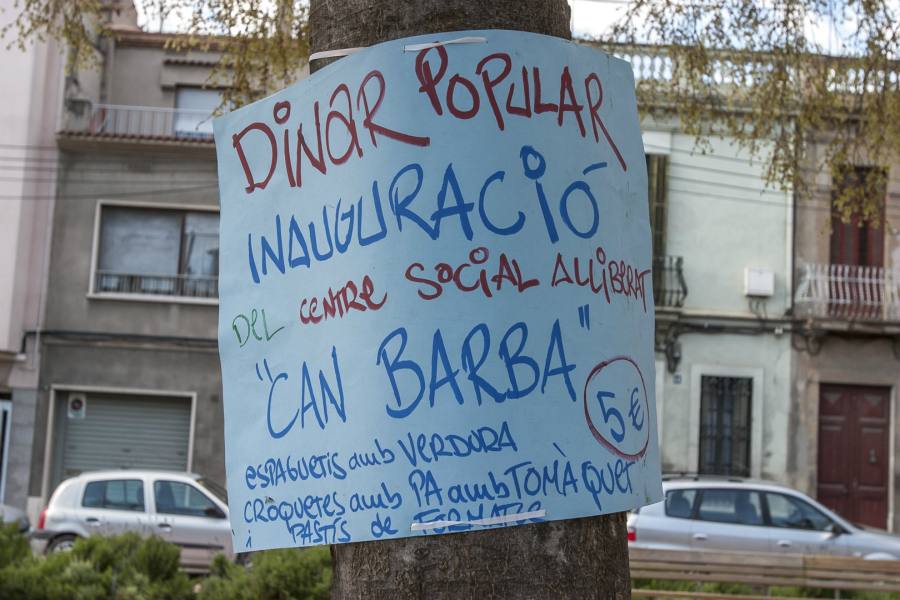 DINAR POPULAR
INAUGURACIÓ
DEL CENTRE SOCIAL ALLIBERAT
"CAN BARBA"
5 €
ESPAGUETIS amb VERDURA
CROQUETES amb PA amb TOMÀQUET
i PASTÍS de FORMATGE